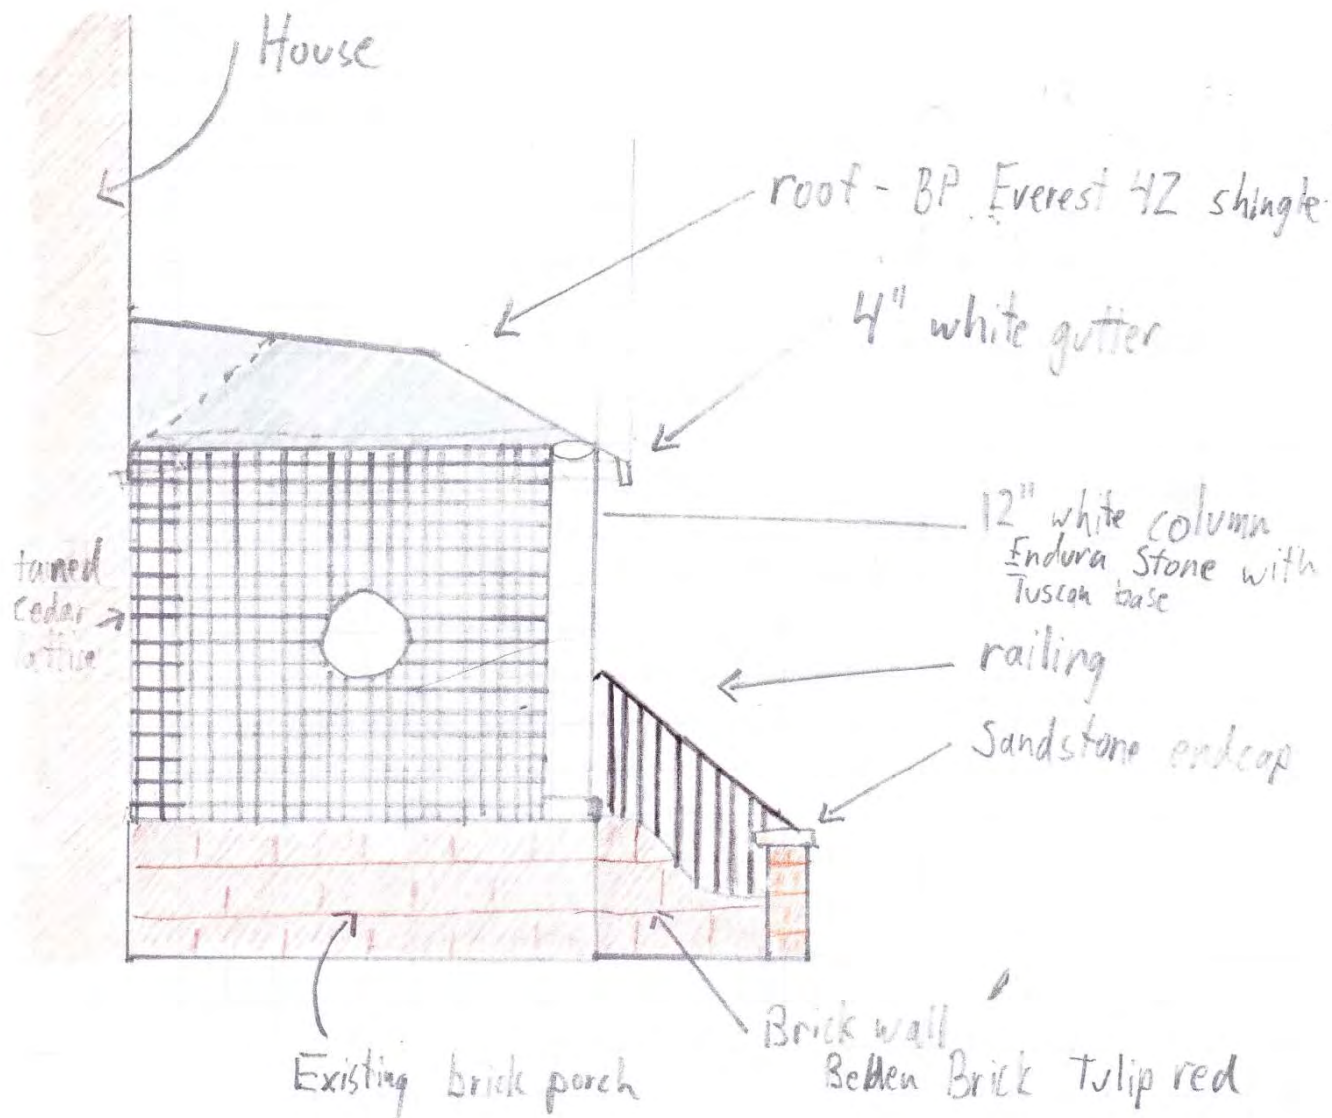 House
roof - BP Everest 42 shingle
4" white gutter
12" white column
Endura Stone with
Tuscan base
tained
cedar
lattise
railing
Sandstone endcap
Brick wall
Belden Brick Tulip red
Existing brick porch